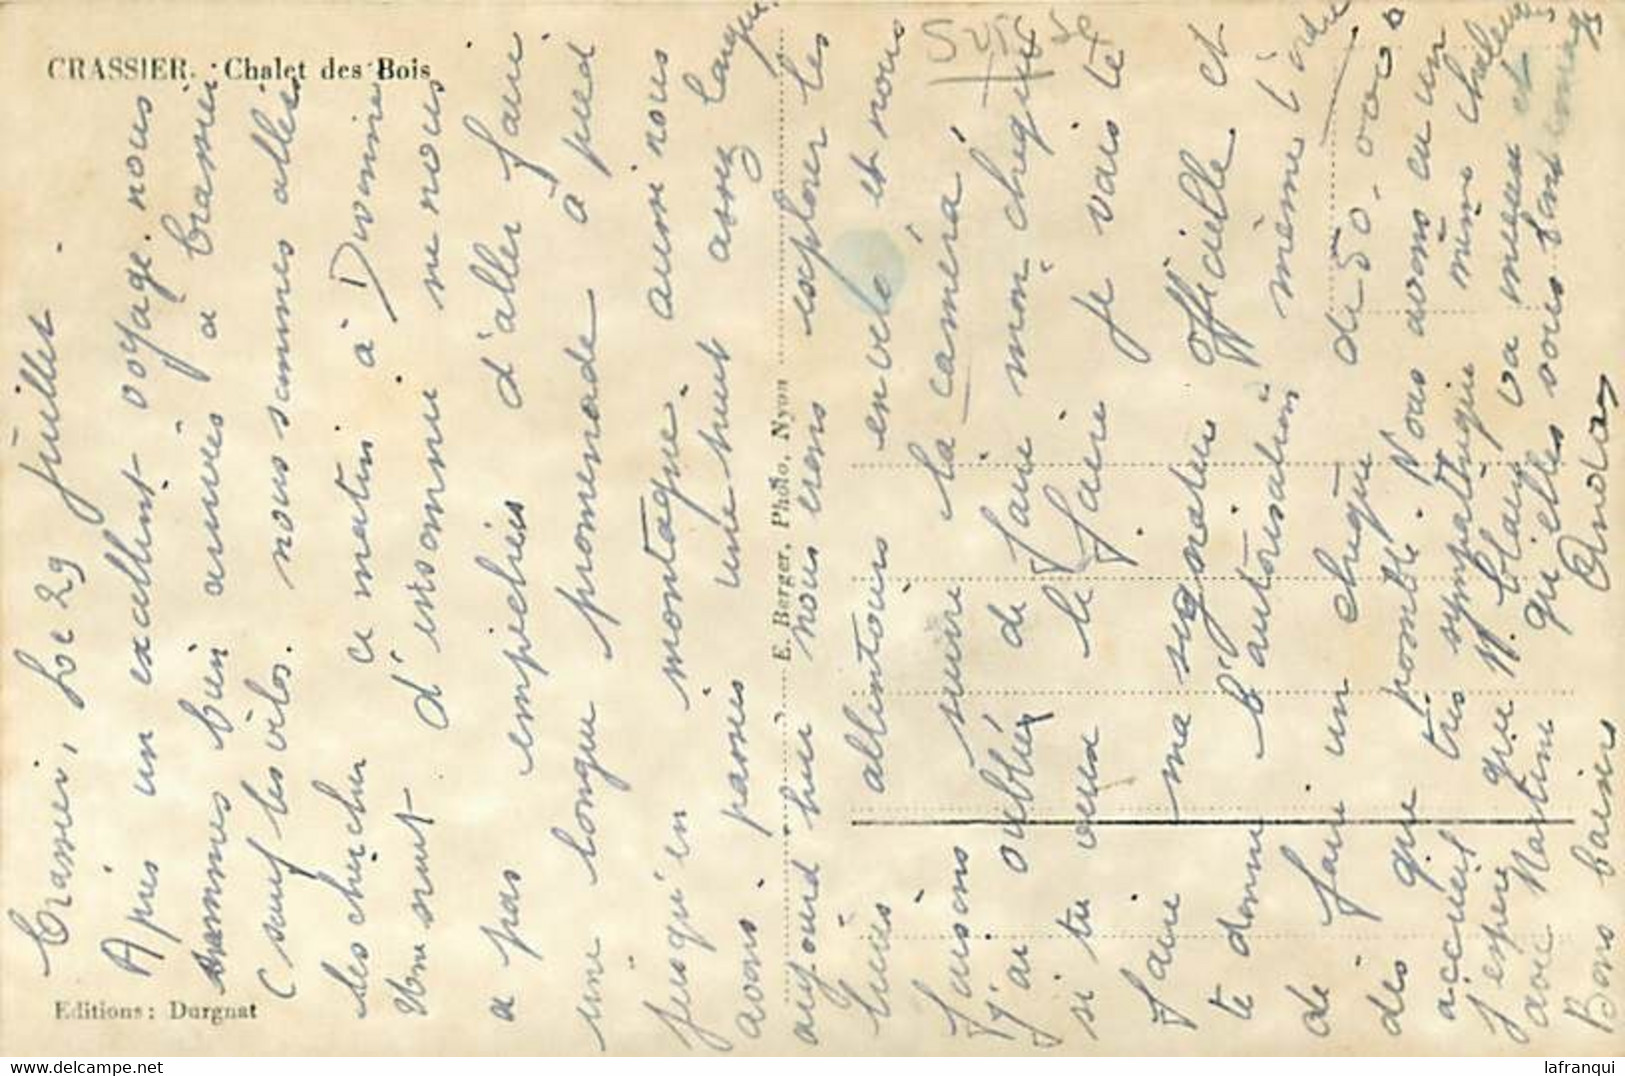 CRASSIER. Chalet des Bois
Editions: Durgnat
E. Berger, Photo, Nyon
Suisse
Crassier, le 29 juillet.
Après un excellent voyage. nous
sommes bien arrivés à Crassier
(sauf les vélos. nous sommes allés
les chercher ce matin à Divonne
Une nuit d'insomnie ne nous
a pas empêchés d'aller faire
une longue promenade à pied
jusqu'en montagne. aussi nous
avons passés une nuit assez longue.
aujourd'hui nous irons explorer les
alentours en vélo et nous
faisons suivre la caméra!
j'ai oublié de faire mon chèque
si tu veux le faire je vais te
faire ma signature officielle et
te donne l'autorisation même l'ordre
de faire un chèque de 50.000
dès que possible. Nous avons eu un
accueil très sympathique
j'espère que M. Blanc va mieux et
avec Martine qu'elles sont sages
Bons baisers